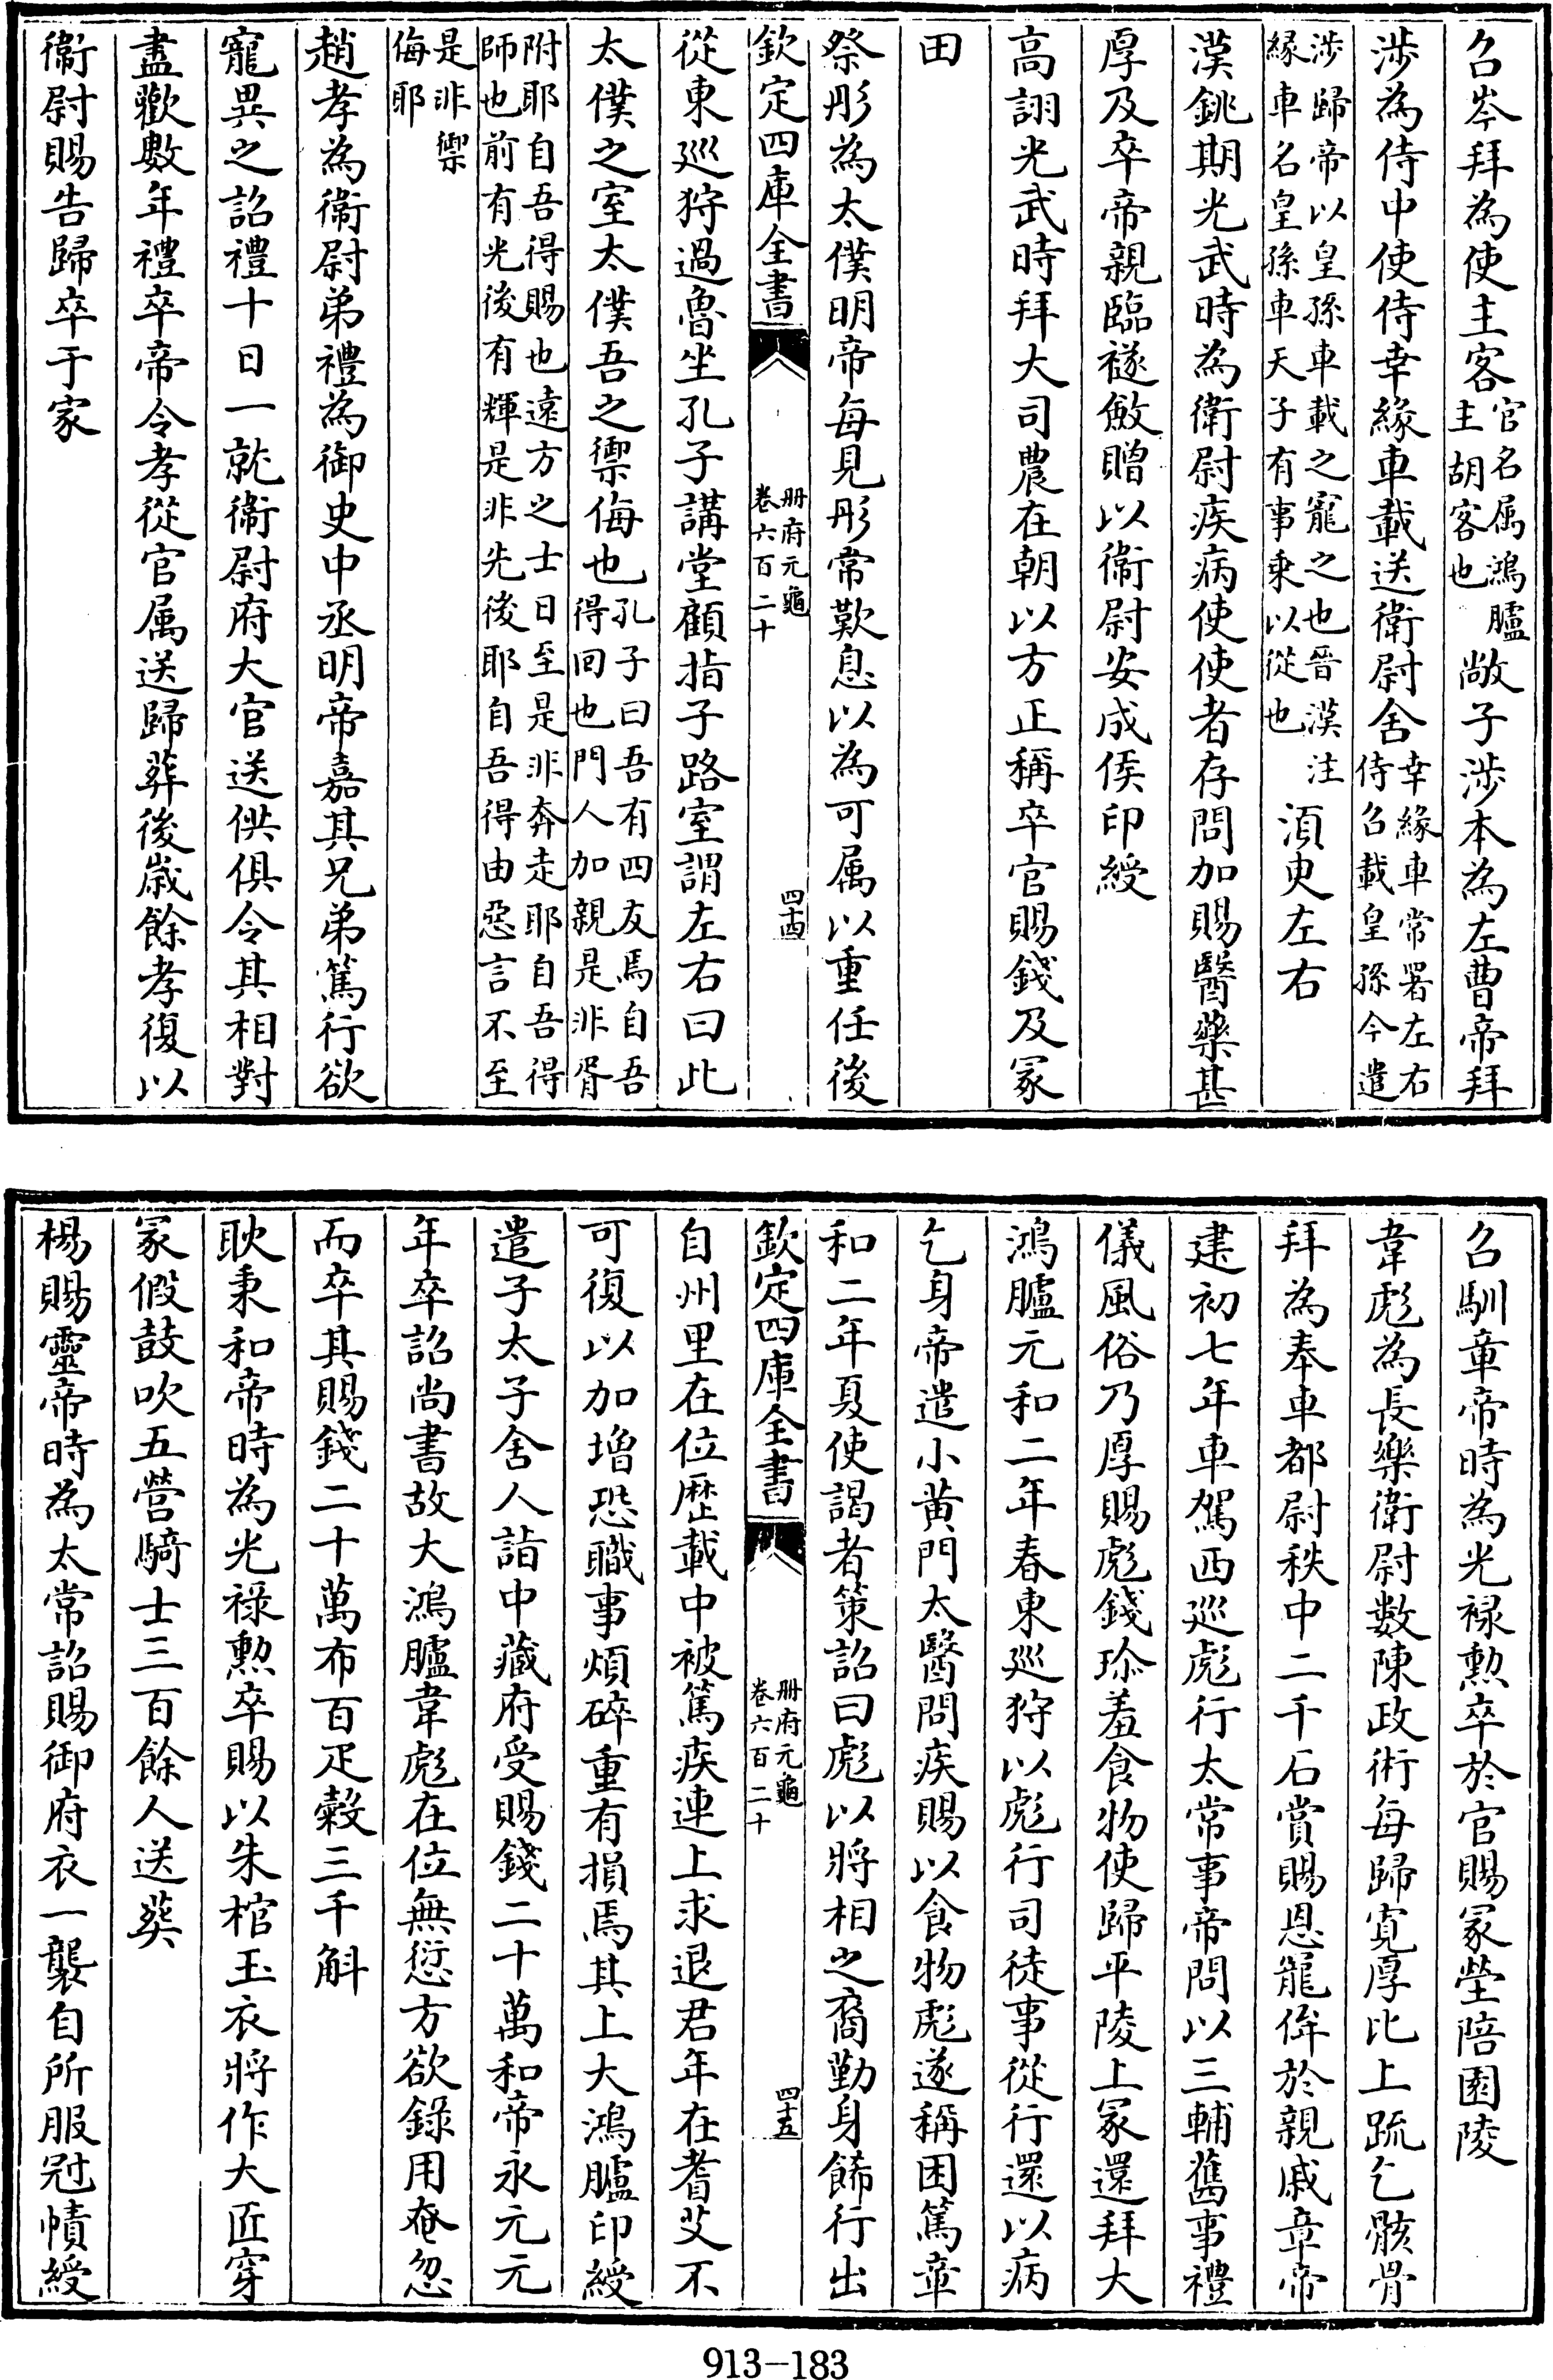 召岑拜為使主客官名属鴻臚主胡客也敞子涉本為左曹帝拜
涉為侍中使侍幸緣車載送衛尉舍幸緣車常署左右侍召載皇孫今遣
涉歸帝以皇孫車載之寵之也晉漢注緣車名皇孫車天子有事乘以從也須臾左右
漢銚期光武時為衛尉疾病使使者存問加賜醫藥甚
厚及卒帝親臨襚斂贈以衛尉安成侯印綬
高詡光武時拜大司農在朝以方正稱卒官賜錢及冢
田
祭肜為太僕明帝每見肜常歎息以為可属以重任後
欽定四庫全書 冊府元龜卷六百二十 四十四
從東巡狩過魯坐孔子講堂顧指子路室謂左右曰此
太僕之室太僕吾之禦侮也孔子曰吾有四友焉自吾得回也門人加親是非胥
附耶自吾得賜也遠方之士日至是非奔走耶自吾得師也前有光後有輝是非先後耶自吾得由惡言不至
是非禦侮耶
趙孝為衛尉弟禮為御史中丞明帝嘉其兄弟篤行欲
寵異之詔禮十日一就衛尉府大官送供俱令其相對
盡歡數年禮卒帝令孝從官属送歸葬後歲餘孝復以
衛尉賜告歸卒于家
召馴章帝時為光祿勲卒於官賜冢塋陪園陵
韋彪為長樂衛尉數陳政術每歸寛厚比上疏乞骸骨
拜為奉車都尉秩中二千石賞賜恩寵侔於親戚章帝
建初七年車駕西巡彪行太常事帝問以三輔舊事禮
儀風俗乃厚賜彪錢珍羞食物使歸平陵上冢還拜大
鴻臚元和二年春東巡狩以彪行司徒事從行還以病
乞身帝遣小黄門太醫問疾賜以食物彪遂稱困篤章
和二年夏使謁者策詔曰彪以將相之裔勤身飾行出
欽定四庫全書 冊府元龜卷六百二十 四十五
自州里在位歴載中被篤疾連上求退君年在耆艾不
可復以加增恐職事煩碎重有損焉其上大鴻臚印綬
遣子太子舍人詣中藏府受賜錢二十萬和帝永元元
年卒詔尚書故大鴻臚韋彪在位無愆方欲錄用奄忽
而卒其賜錢二十萬布百疋穀三千斛
耿秉和帝時為光禄勲卒賜以朱棺玉衣將作大匠穿
冢假鼓吹五營騎士三百餘人送葬
楊賜靈帝時為太常詔賜御府衣一襲自所服冠幘綬
913-183